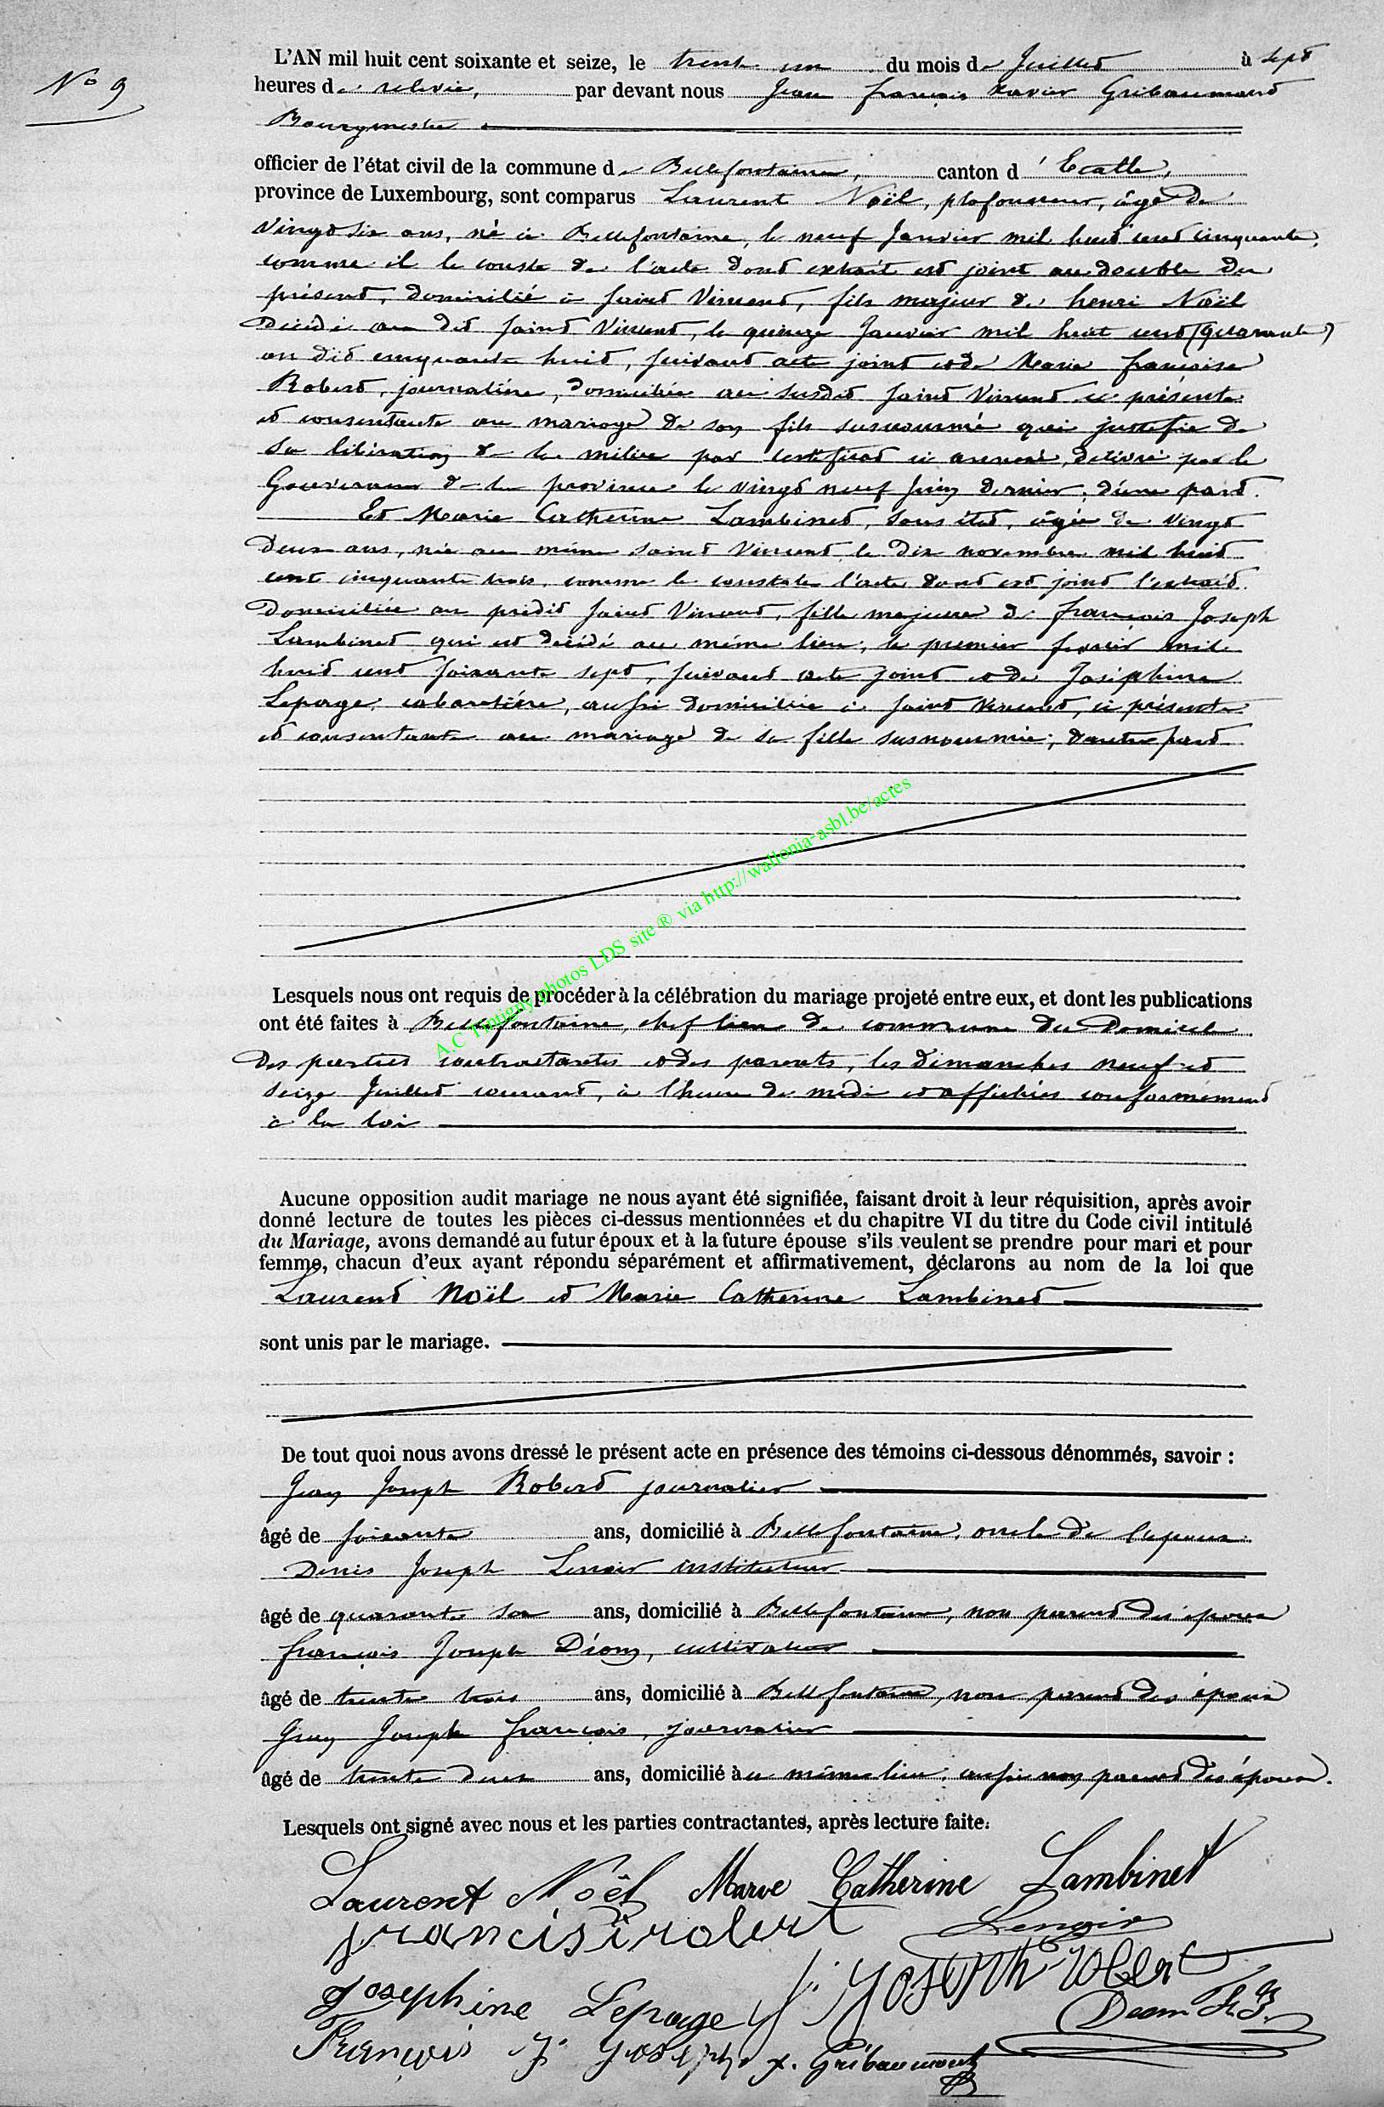 L'AN mil huit cent soixante et seize, le trente un du mois de Juillet à sept
No 9
heures de relevée, par devant nous Jean françois Xavier Gribaumont
Bourgmestre
officier de l'état civil de la commune de Bellefontaine, canton d'Etalle,
province de Luxembourg, sont comparus Laurent Noël, plafonneur, âgé de
vingt six ans, né à Bellefontaine, le neuf Janvier mil huit cent cinquante,
comme il le conste de l'acte dont extrait est joint au double du
présent, domicilié à saint Vincent, fils majeur de henri Noël
décédé au dit saint Vincent, le quinze Janvier mil huit cent (quarante)
on dit cinquante huit, suivant acte joint et de Marie françoise
Robert, journalière, domiciliée au susdit saint Vincent ici présente
et consentante au mariage de son fils susnommé qui justifie de
sa libération de la milice par certificat ci annexé, délivré par le
Gouverneur de la province le vingt neuf Juin dernier, d'une part.
Et Marie Catherine Lambinet, sans état, âgée de vingt
deux ans, née au même saint Vincent, le dix novembre mil huit
cent cinquante trois, comme le constate l'acte dont est joint l'extrait
domiciliée au prédit saint Vincent, fille majeure de françois Joseph
Lambinet qui est décédé au même lieu, le premier fevrier mil
huit cent soixante sept, suivant acte joint et de Joséphine
Lepage, cabaretière, aussi domiciliée à saint Vincent, ici présente
et consentante au mariage de sa fille susnommée, d'autre part
A.C Tintigny photos LDS site ® via http://wallonia-asbl.be/actes
Lesquels nous ont requis de procéder à la célébration du mariage projeté entre eux, et dont les publications
ont été faites à Bellefontaine, chef lieu de commune du domicile
des parties contractantes et des parents, les dimanches neuf et
seize Juillet courant, à l'heure de midi et affichées conformément
à la loi
Aucune opposition audit mariage ne nous ayant été signifiée, faisant droit à leur réquisition, après avoir
donné lecture de toutes les pièces ci-dessus mentionnées et du chapitre VI du titre du Code civil intitulé
du Mariage, avons demandé au futur époux et à la future épouse s'ils veulent se prendre pour mari et pour
femme, chacun d'eux ayant répondu séparément et affirmativement, déclarons au nom de la loi que
Laurent Noël et Marie Catherine Lambinet
sont unis par le mariage.
De tout quoi nous avons dressé le présent acte en présence des témoins ci-dessous dénommés, savoir :
Jean Joseph Robert journalier
âgé de soixante ans, domicilié à Bellefontaine, oncle de l'époux
Denis Joseph Lenoir instituteur
âgé de quarante six ans, domicilié à Bellefontaine, non parent des époux
françois Joseph Dion, cultivateur
âgé de trente trois ans, domicilié à Bellefontaine, non parent des époux
Jean Joseph françois, journalier
âgé de trente deux ans, domicilié au même lieu, aussi non parent des époux.
Lesquels ont signé avec nous et les parties contractantes, après lecture faite.
Laurent Noël Marie Catherine Lambinet
Lenoir
Josephine Lepage J. Joseph robert
François J. Joseph x. Gribaumont